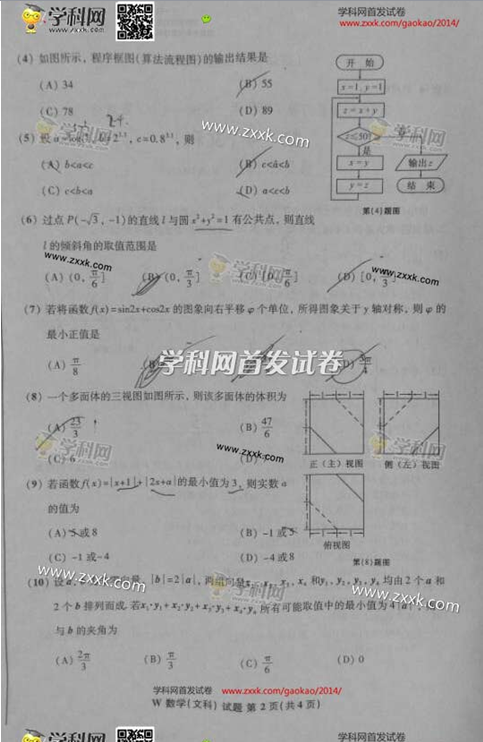 学科网 学科网首发试卷
www.zxxk.com www.zxxk.com/gaokao/2014/
(4) 如图所示，程序框图(算法流程图)的输出结果是
(A) 34 (B) 55
(C) 78 (D) 89
开 始
x=1, y=1
z=x+y
z≤50?
是
x=y 输出z
y=z 结 束
第(4)题图
学科网
www.zxxk.com
24
(5) 设 c=0.8^{3.1}, 则
(A) b<a<c (B) c<a<b
(C) c<b<a (D) a<c<b
学科网
(6) 过点P(-√3, -1)的直线l与圆x²+y²=1有公共点，则直线
l的倾斜角的取值范围是
www.zxxk.com www.zxxk.com
(A) (0, π/6] (B) (0, π/3] (C) [0, π/6] (D) [0, π/3]
学科网
(7) 若将函数f(x)=sin2x+cos2x的图象向右平移φ个单位，所得图象关于y轴对称，则φ的
最小正值是
(A) π/8 (B) (D) 3π/4
学科网首发试卷
(8) 一个多面体的三视图如图所示，则该多面体的体积为
(A) 23/3 (B) 47/6
(C) 6 (D) 7
学科网
www.zxxk.com
正（主）视图 侧（左）视图
俯视图
第(8)题图
(9) 若函数f(x)=|x+1|+|2x+a|的最小值为3，则实数a
的值为
(A) 5或8 (B) -1或5
(C) -1或-4 (D) -4或8
(10) 设 |b|=2|a|, x₃, x₄和y₁, y₂, y₃, y₄均由2个a和
2个b排列而成. 若x₁·y₁+x₂·y₂+x₃·y₃+x₄·y₄所有可能取值中的最小值为4|a|²,
与b的夹角为
www.zxxk.com 学科网 www.zxxk.com
(A) 2π/3 (B) π/3 (C) π/6 (D) 0
学科网首发试卷
www.zxxk.com/gaokao/2014/
W 数学(文科) 试题 第2页(共4页)
学科网 学科网首发试卷